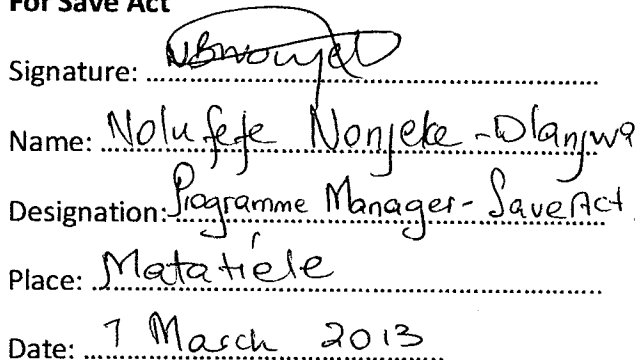 For Save Act
Signature:
Name: Nolufefe Nonjeke-Dlanjwa
Designation: Programme Manager- SaveAct
Place: Matatiele
Date: 7 March 2013